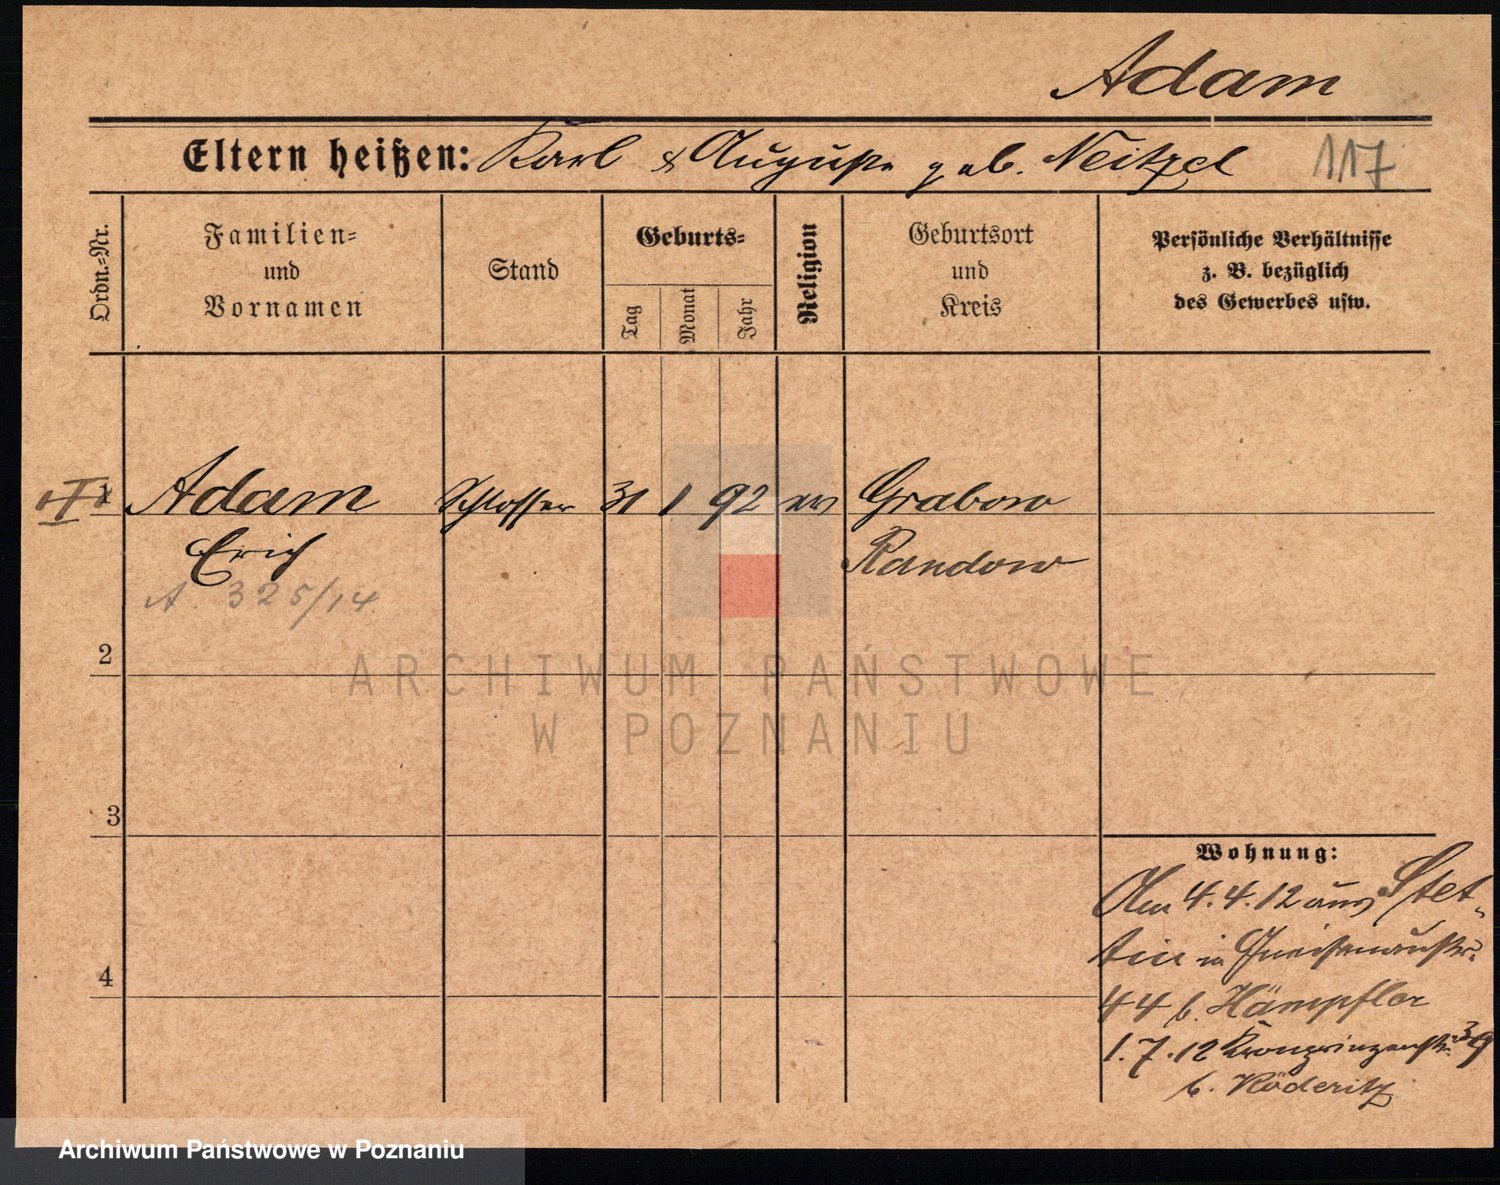 Adam
Eltern heißen: Karl & Auguste geb. Neitzel 117
Ordn.=Nr.
Familien=
und
Vornamen
Stand
Geburts=
Tag
Monat
Jahr
Religion
Geburtsort
und
Kreis
Persönliche Verhältnisse
z. B. bezüglich
des Gewerbes usw.
1 Adam Schlosser 31 1 92 ev Grabow
Erich Randow
A. 325/14
2
3
4
ARCHIWUM PAŃSTWOWE
W POZNANIU
Wohnung:
Am 4.4.12 aus Stet-
tin in Gneisenaustr.
44 b. Hämpfler
1.7.12 Kronprinzenstr. 39
b. Röderitz
Archiwum Państwowe w Poznaniu